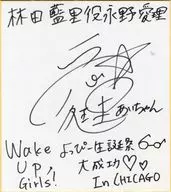 林田藍里役永野愛理
あいちゃん
Wake よっぴー生誕祭
UP, 大成功♡♡
Girls! In CHICAGO